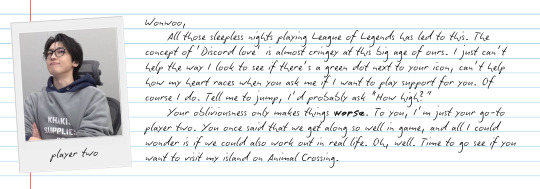 Wonwoo,
All those sleepless nights playing League of Legends has led to this. The
concept of 'Discord love' is almost cringey at this big age of ours. I just can't
help the way I look to see if there's a green dot next to your icon, can't help
how my heart races when you ask me if I want to play support for you. Of
course I do. Tell me to jump, I'd probably ask "How high?"
Your obliviousness only makes things worse. To you, I'm just your go-to
player two. You once said that we get along so well in game, and all I could
wonder is if we could also work out in real life. Oh, well. Time to go see if you
want to visit my island on Animal Crossing.
KHAKI
SUPPLIES
player two